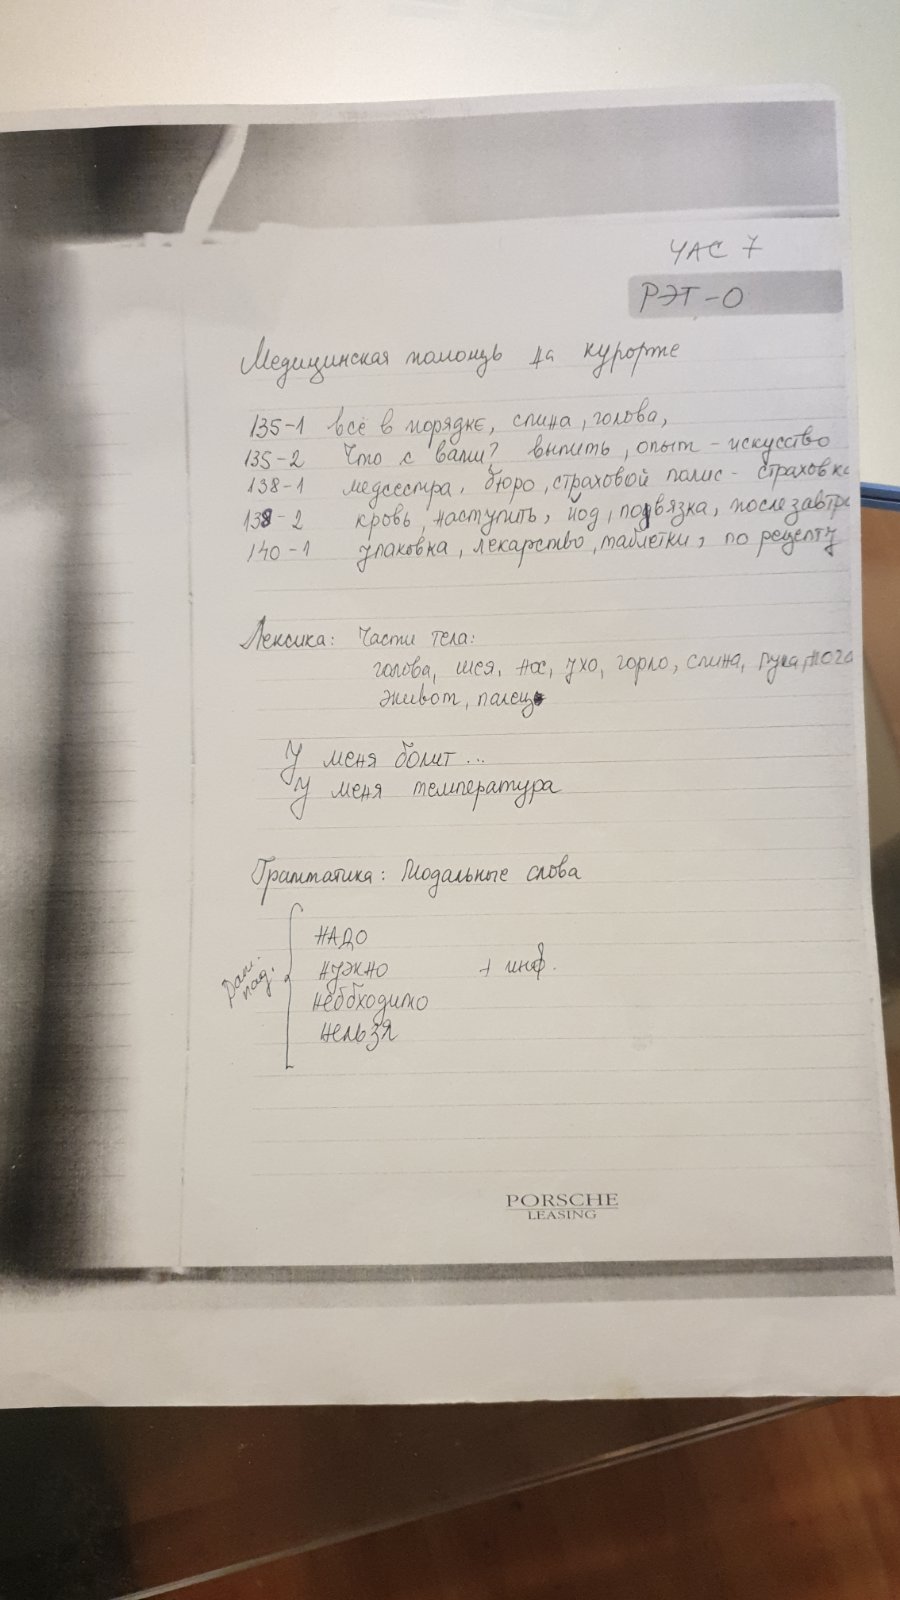 ЧАС 7
РЭТ-О
Медицинская помощь на курорте
135-1 всё в порядке, спина, голова,
135-2 Что с вами? выпить, опыт - искусство
138-1 медсестра, бюро, страховой полис - страховка
138-2 кровь, наступить, йод, повязка, послезавтра
140-1 упаковка, лекарство, таблетки, по рецепту
Лексика: Части тела:
голова, шея, нос, ухо, горло, спина, рука, нога
живот, палец
У меня болит ...
У меня температура
Грамматика: Модальные слова
Дат.
пад.
НАДО
НУЖНО + инф.
необходимо
нельзя
PORSCHE
LEASING